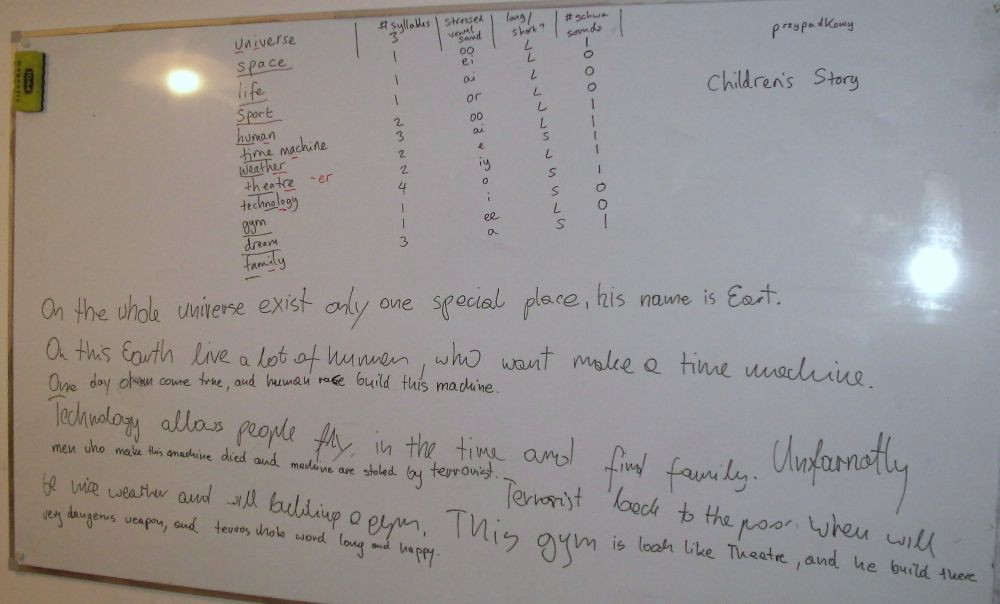 #syllables stressed vowel sound long/short? #schwa sounds
universe 3 oo L 1
space 1 ei L 0
life 1 ai L 0
Sport 1 or L 0
human 2 oo L 1
time machine 3 ai L 1
weather 2 e S 1
theatre -er 2 iy L 1
technology 4 o S 1
gym 1 i S 0
dream 1 ee L 0
family 3 a S 1
preypadkowy
Children's Story
On the whole universe exist only one special place, his name is Eart.
On this Earth live a lot of humen, who want make a time machine.
One day come true, and human race build this machine.
Technology allows people fly in the time and find family. Unfarnatly
men who make this machine died and machine are stoled by terrorist.
Terrorist back to the when will
be nice weather and will building a gym. This gym is look like Theatre, and he build there
very dangerus weapon, and terros whole word long and happy.